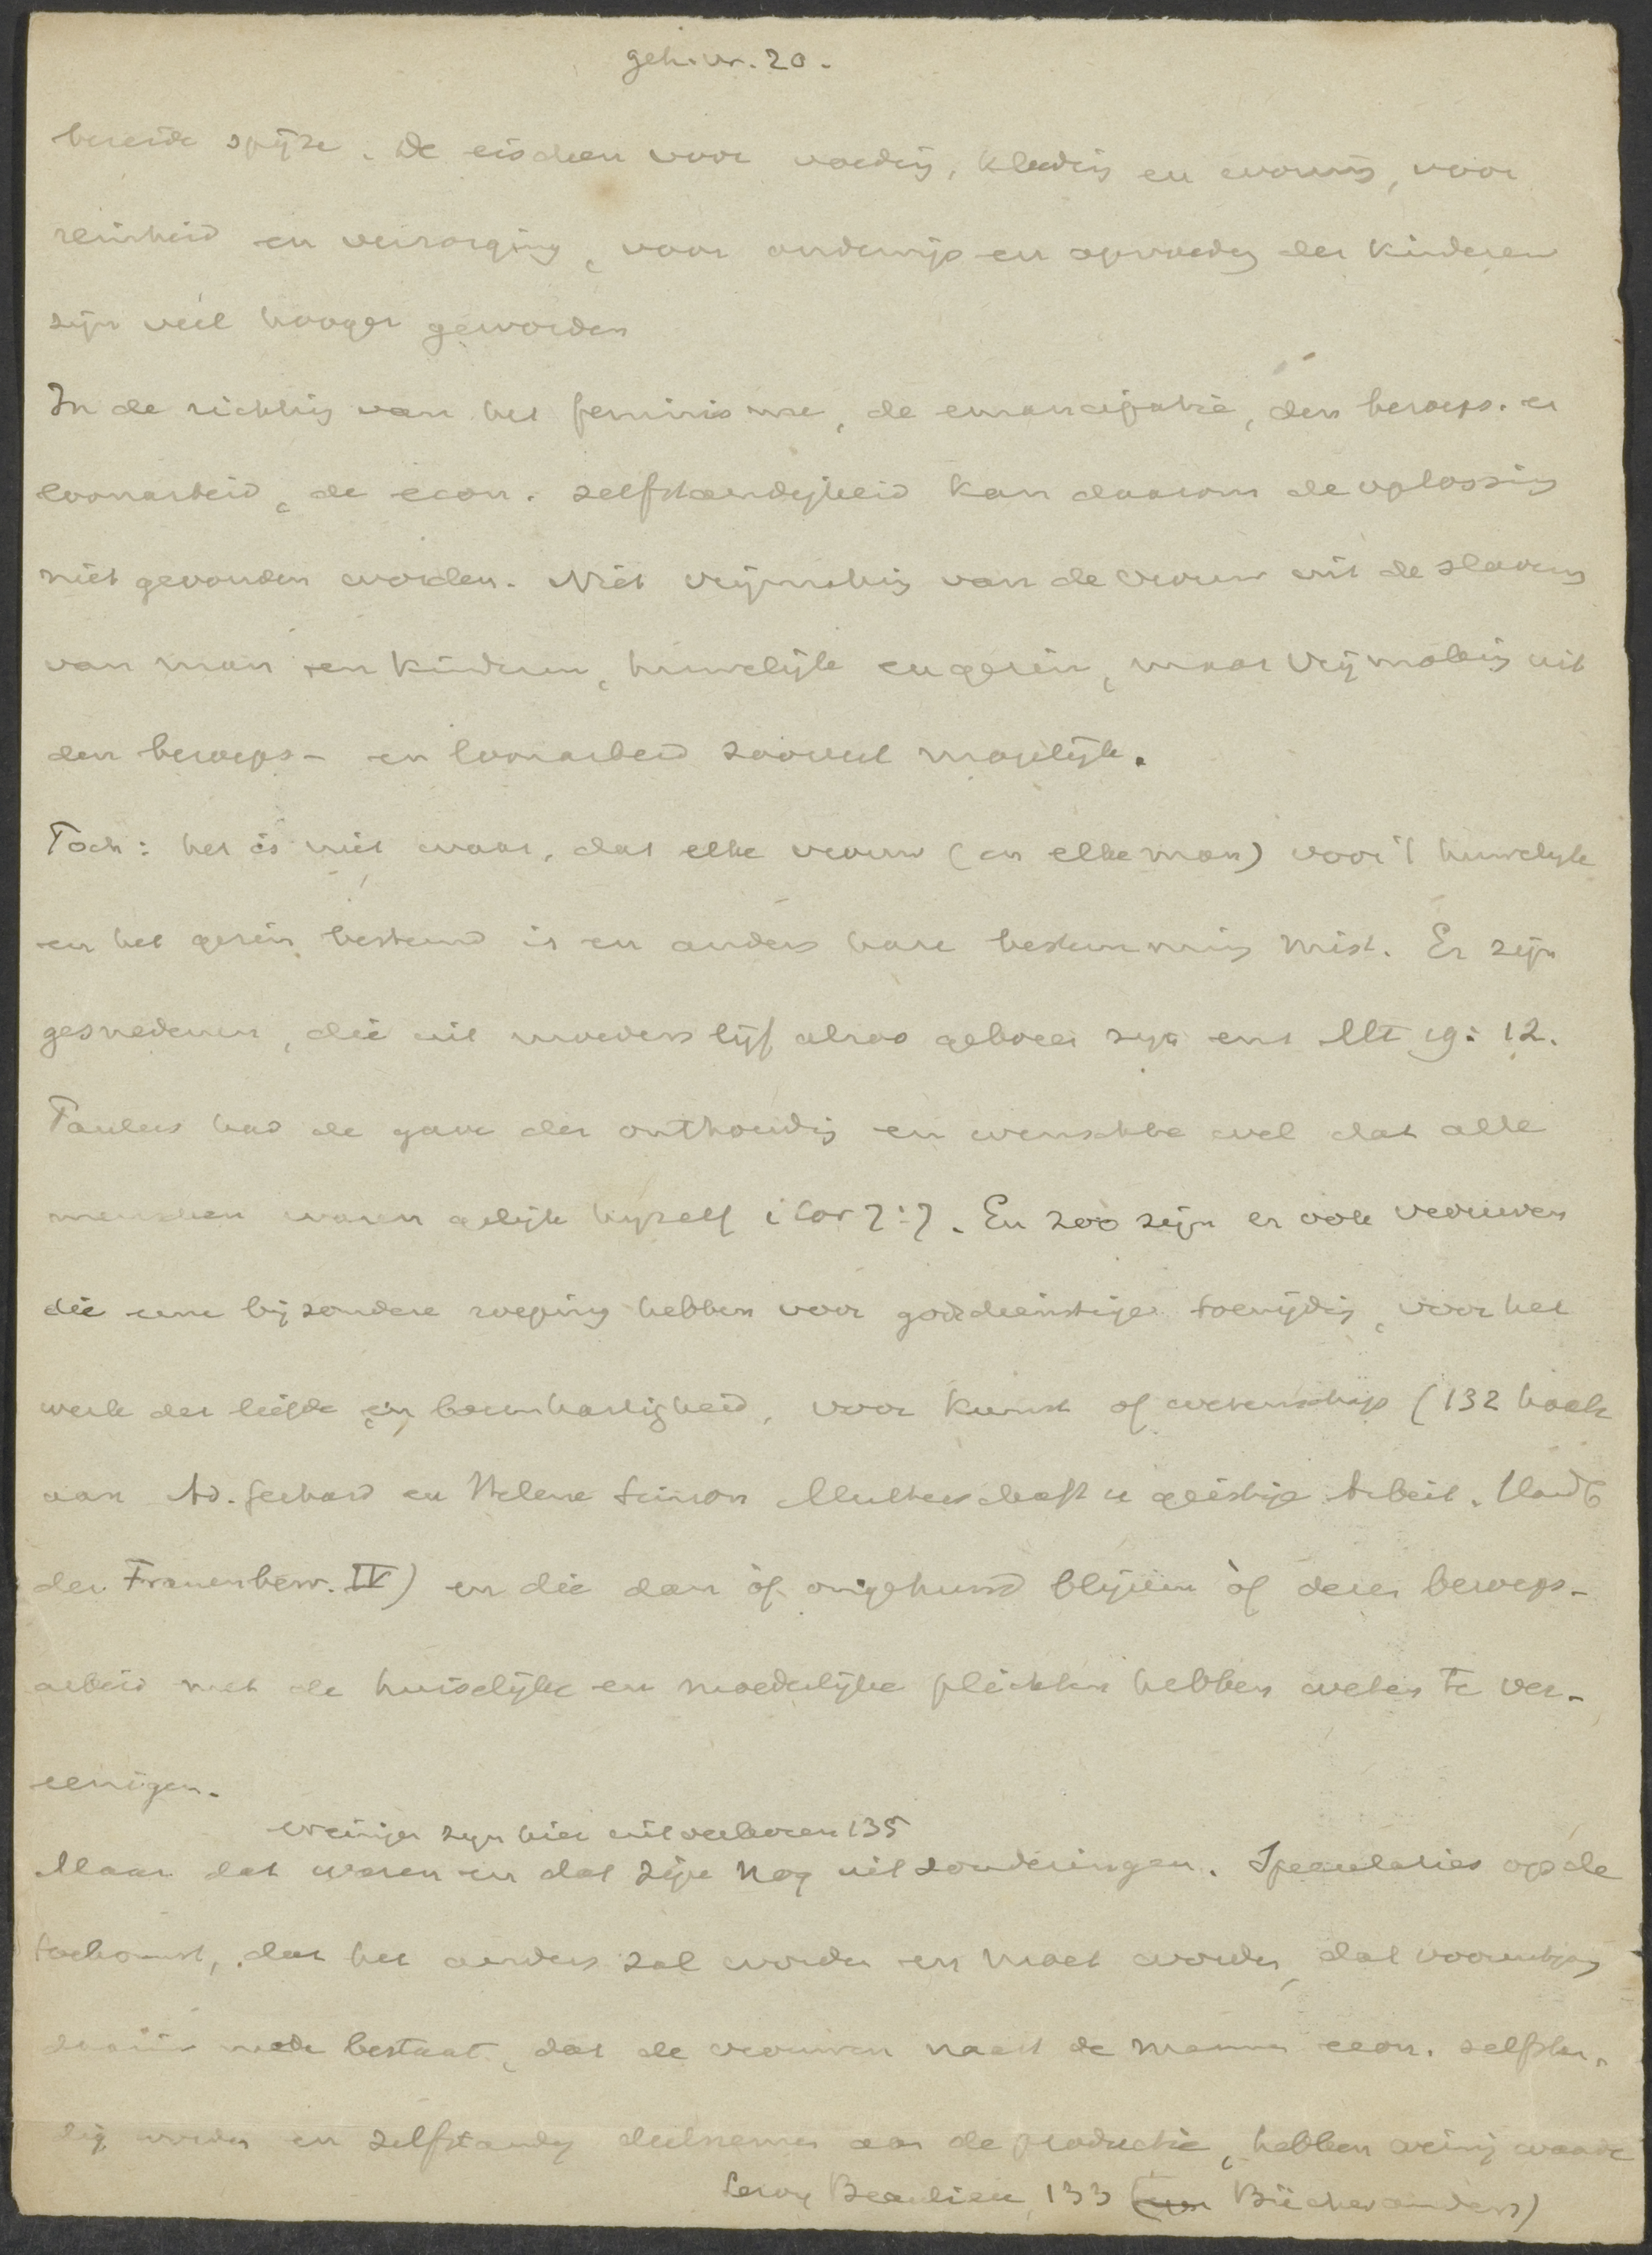 geh. vr. 20.
bereide spijze. De eischen voor voeding, kleeding en woning, voor
reinheid en verzorging, voor onderwijs en opvoeding der kinderen
zijn veel hooger geworden
In de richting van het feminisme, de emancipatie, den beroeps- en
loonarbeid, de econ. zelfstandigheid kan daarom de oplossing
niet gevonden worden. Niet vrijmaking van de vrouw uit de slaverny
van man en kinderen, huwelijk en gezin, maar vrijmaking uit
den beroeps- en loonarbeid zooveel mogelijk.
Toch: het is niet waar, dat elke vrouw (en elke man) voor 't huwelyk
en het gezin bestemd is en anders hare bestemming mist. Er zijn
gesnedenen, die uit moeders lijf alzoo geboren zijn enz Mt 19:12.
Paulus had de gave der onthouding en wenschte wel dat alle
menschen waren gelijk hyzelf 1 Cor 7:7. En zoo zijn er ook vrouwen
die eene bijzondere roeping hebben voor godsdienstige toewijding, voor het
werk der liefde en barmhartigheid, voor kunst of wetenschap (132 boek
van Ad. Gerhard en Helene Simon Mutterschaft u geistige Arbeit. Handb
der Frauenbew. IV) en die dan òf ongehuwd blijven òf dezen beroeps-
arbeid met de huiselijke en moederlijke plichten hebben weten te ver-
eenigen.
weinigen zyn hier uitverkoren 135
Maar dat waren en dat zijn nog uitzonderingen. Speculaties op de
toekomst, dat het anders zal worden en moet worden, dat vooruitgang
daarin mede bestaat, dat de vrouwen naast de mannen econ. zelfstan-
dig worden en zelfstandig deelnemen aan de productie, hebben weinig waarde
Leroy Beaulieu 133 (Bücher anders)